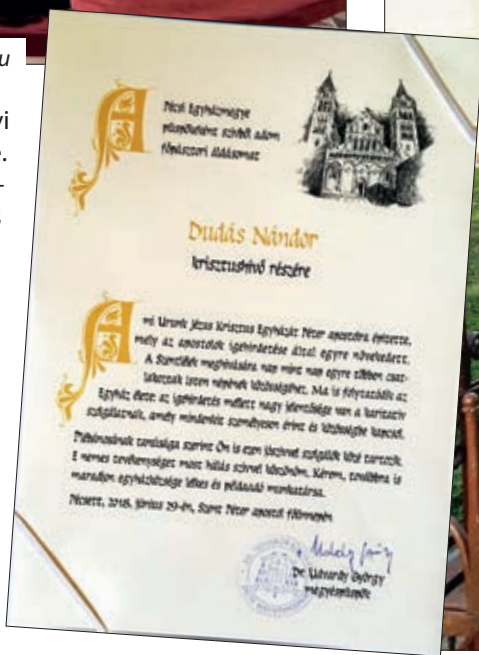 u
yi
.
-
A Pécsi Egyházmegye
püspökeként szívből adom
főpásztori áldásomat
Dudás Nándor
krisztushívő részére
A mi Urunk Jézus Krisztus Egyházát Péter apostolra építette,
mely az apostolok igehirdetése által egyre növekedett.
A Szentlélek meghívására nap mint nap egyre többen csat-
lakoztak Isten népének közösségéhez. Ma is folytatódik az
Egyház élete: az igehirdetés mellett nagy jelentősége van a karitatív
szolgálatnak, amely mindenkit személyesen érint és közösségbe kapcsol.
Plébánosának tanúsága szerint Ön is ezen jószívvel szolgálók közé tartozik.
E nemes tevékenységet most hálás szívvel köszönöm. Kérem, továbbra is
maradjon egyházközsége lelkes és példaadó munkatársa.
Pécsett, 2018. június 29-én, Szent Péter apostol főünnepén
Dr. Udvardy György
megyéspüspök